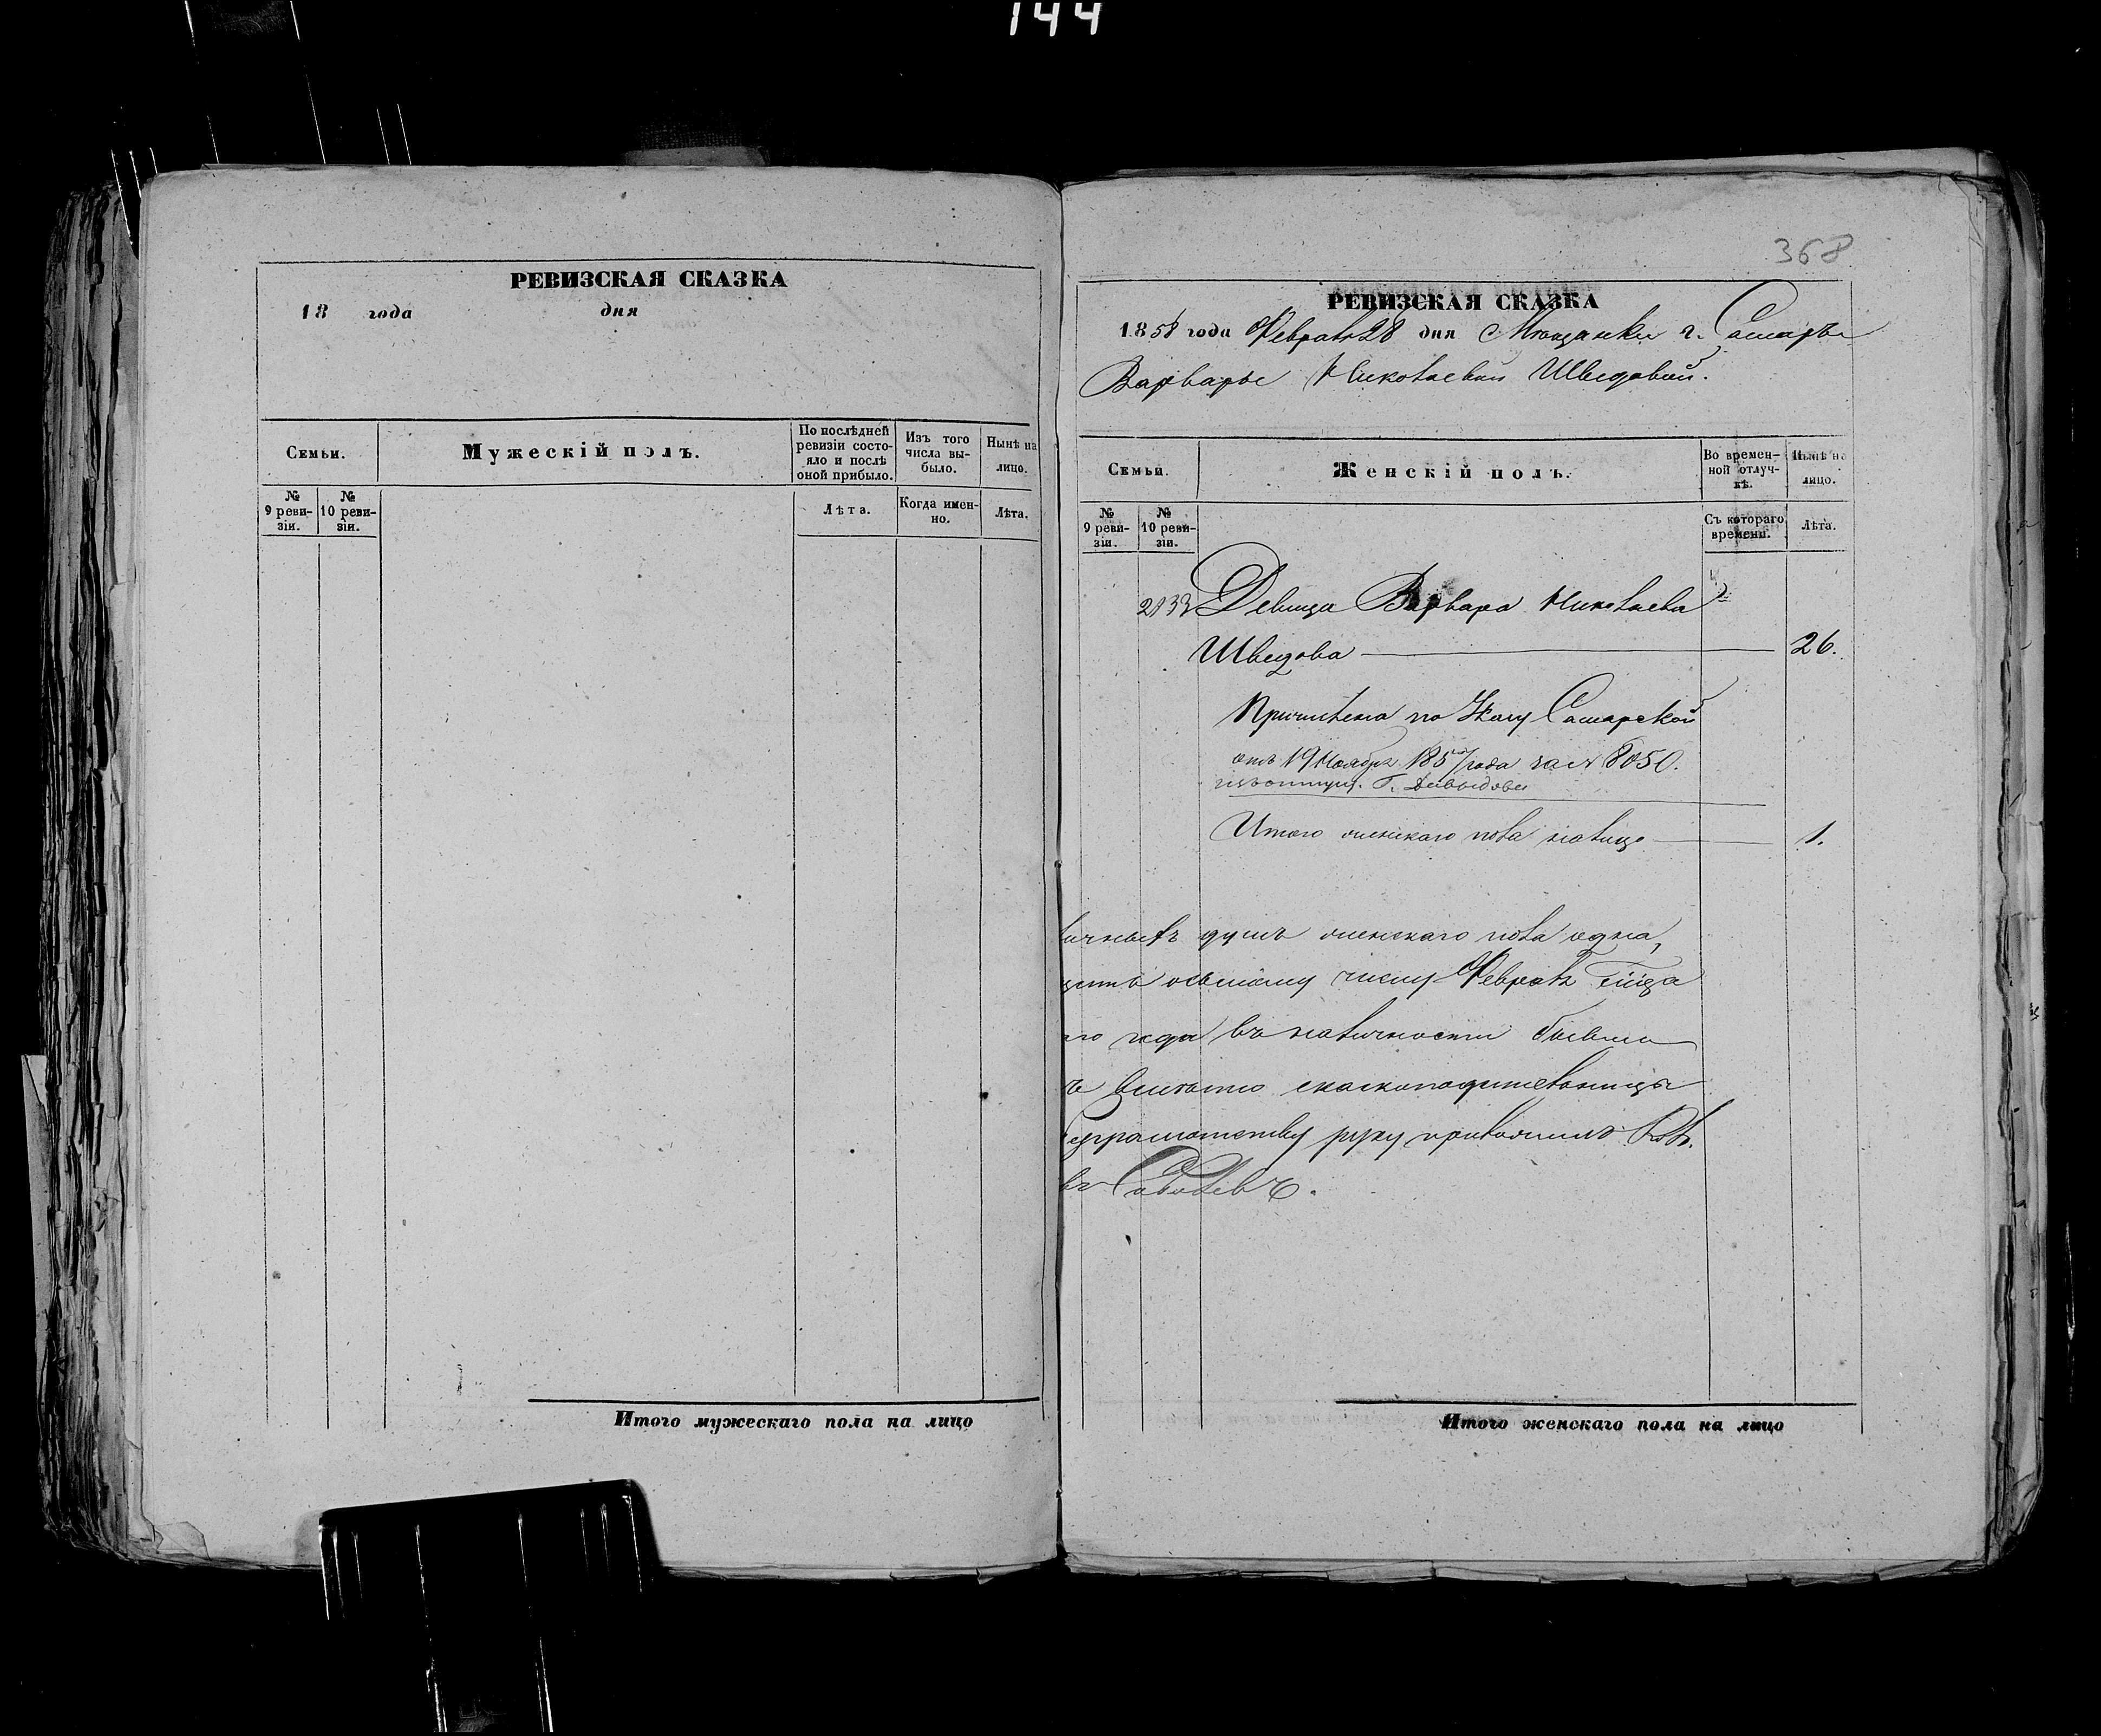 144
РЕВИЗСКАЯ СКАЗКА
18 года дня
Семьи.
Мужескій полъ.
По послѣдней ревизіи состояло и послѣ оной прибыло.
Изъ того числа выбыло.
Нынѣ на лицо.
№ 9 ревизіи.
№ 10 ревизіи.
Лѣта.
Когда именно.
Лѣта.
Итого мужескаго пола на лицо
368
РЕВИЗСКАЯ СКАЗКА
1858 года Февраля 28 дня Мѣщанки г. Самары
Варвары Николаевой Шведовой.
Семьи.
Женскій полъ.
Во временной отлучкѣ.
Нынѣ на лицо.
№ 9 ревизіи.
№ 10 ревизіи.
Съ котораго времени.
Лѣта.
2133 Девица Варвара Николаева
Шведова 26.
Причислена по Укачу Самарской
отъ 19 Ноября 1857 года за № 8050.
Г. Давыдовы
Итого женскаго пола налицо 1.
личныхъ душъ женскаго пола одна,
осьмому числу Февраля
го года въ наличности
сказкоподательницы
руку приложилъ